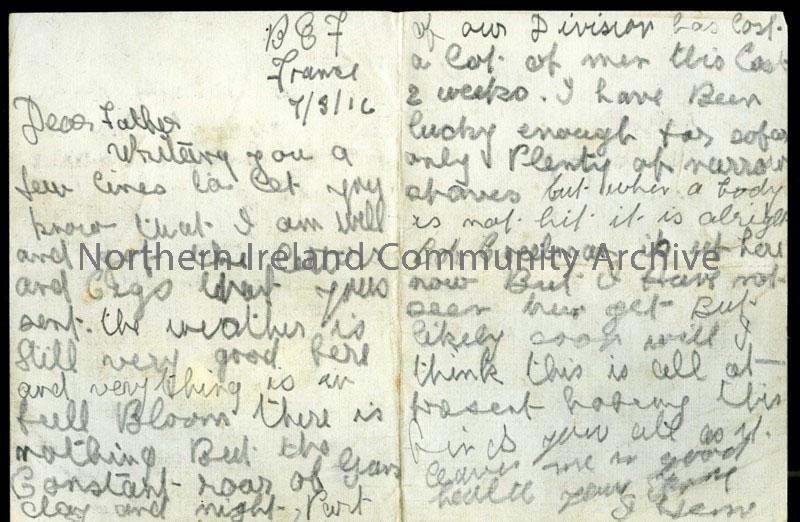 B E F
France
7/8/16
Dear Father
Writing you a
few lines to let you
know that I am well
and got the
and Eggs that you
sent. the weather is
still very good here
and very thing is in
full Bloom there is
nothing But the
Constant roar of Guns
day and night, Part
of our Division has lost
a lot of men this last
2 weeks. I have Been
lucky enough for sofar
only Plenty of narrow
shaves but when a body
is not hit it is alright
is out here
now But I have not
seen him yet But
likely soon will I
think this is all at
present hoping this
finds you all as it
leaves me in good
health your
Northern Ireland Community Archive